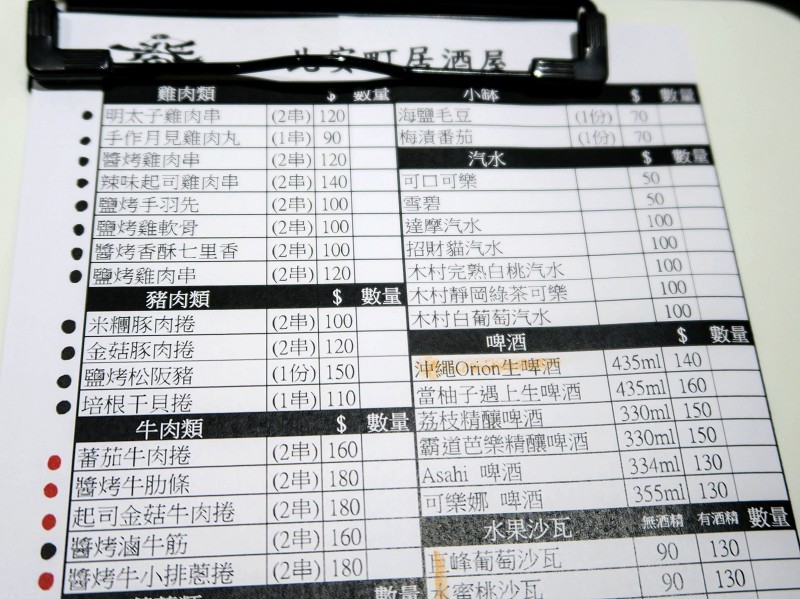 居酒屋
雞肉類 $ 數量
明太子雞肉串 (2串) 120
手作月見雞肉丸 (1串) 90
醬烤雞肉串 (2串) 120
辣味起司雞肉串 (2串) 140
鹽烤手羽先 (2串) 100
鹽烤雞軟骨 (2串) 100
醬烤香酥七里香 (2串) 100
鹽烤雞肉串 (2串) 120
豬肉類 $ 數量
米糰豚肉捲 (2串) 100
金菇豚肉捲 (2串) 120
鹽烤松阪豬 (1份) 150
培根干貝捲 (1串) 110
牛肉類 $ 數量
蕃茄牛肉捲 (2串) 160
醬烤牛肋條 (2串) 180
起司金菇牛肉捲 (2串) 180
醬烤滷牛筋 (2串) 160
醬烤牛小排蔥捲 (2串) 180
數量
小缽 $ 數量
海鹽毛豆 (1份) 70
梅漬番茄 (1份) 70
汽水 $ 數量
可口可樂 50
雪碧 50
達摩汽水 100
招財貓汽水 100
木村完熟白桃汽水 100
木村靜岡綠茶可樂 100
木村白葡萄汽水 100
啤酒 $ 數量
沖繩Orion生啤酒 435ml 140
當柚子遇上生啤酒 435ml 160
荔枝精釀啤酒 330ml 150
霸道芭樂精釀啤酒 330ml 150
Asahi 啤酒 334ml 130
可樂娜 啤酒 355ml 130
水果沙瓦 無酒精 有酒精 數量
巨峰葡萄沙瓦 90 130
水蜜桃沙瓦 90 130